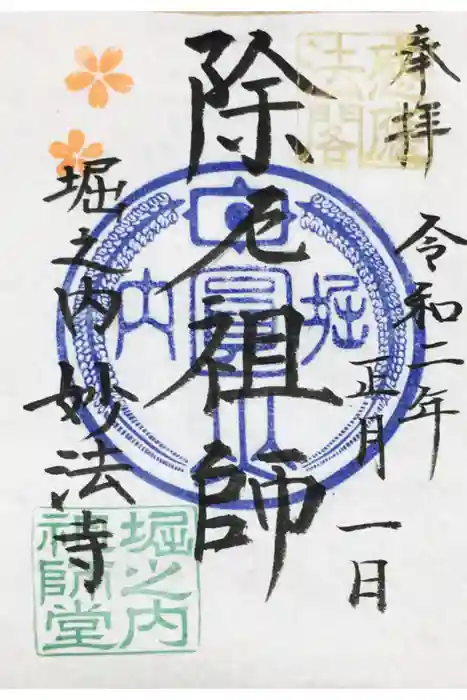 奉拝
令和二年
正月一日
除厄祖師
堀之内 妙法寺
堀之内
祖師堂
堀
内